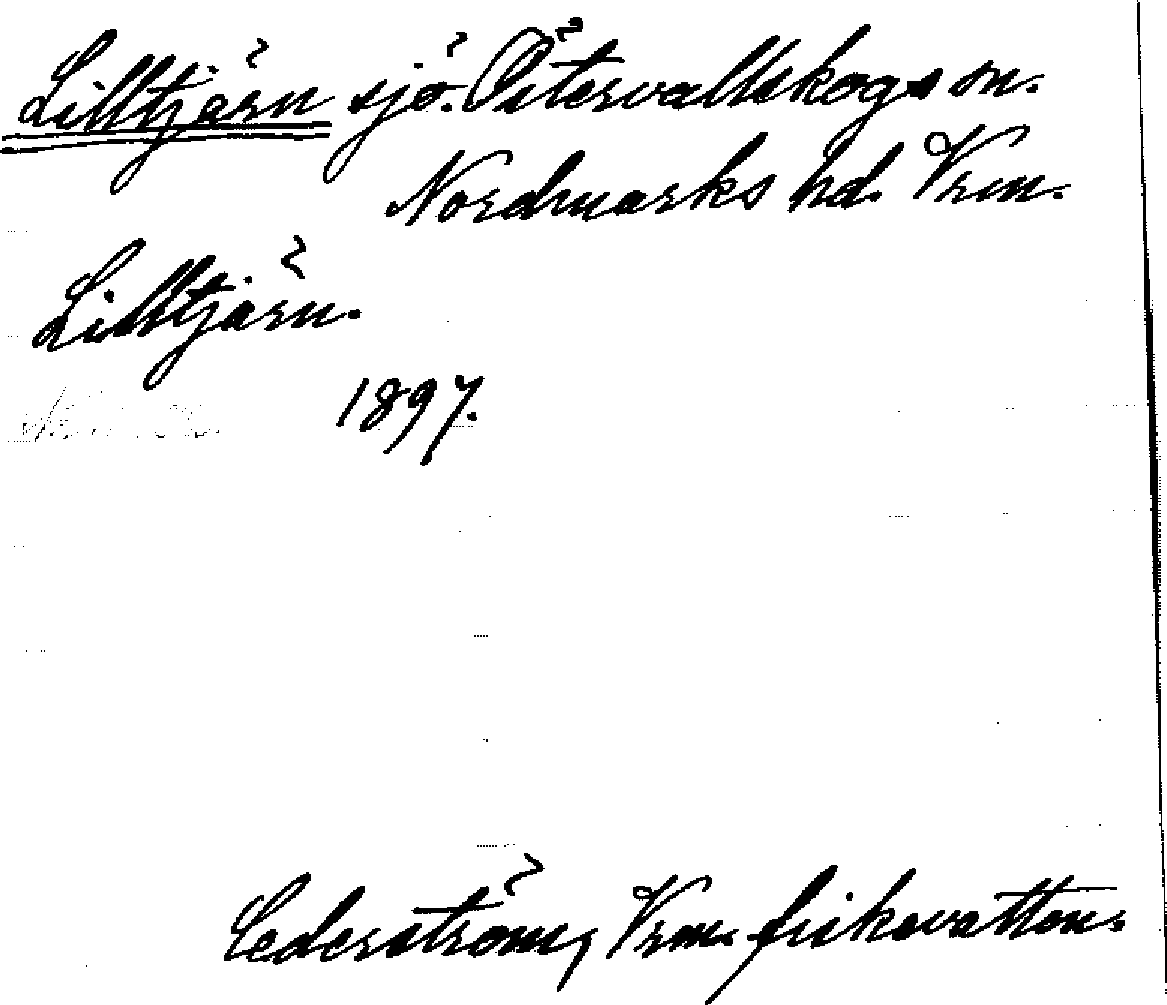 Lilltjärn sjö. Östervallskogs sn.
Nordmarks hd. Vrm.
Lilltjärn.
1897.
Cederström, Vrm. fiskevatten.